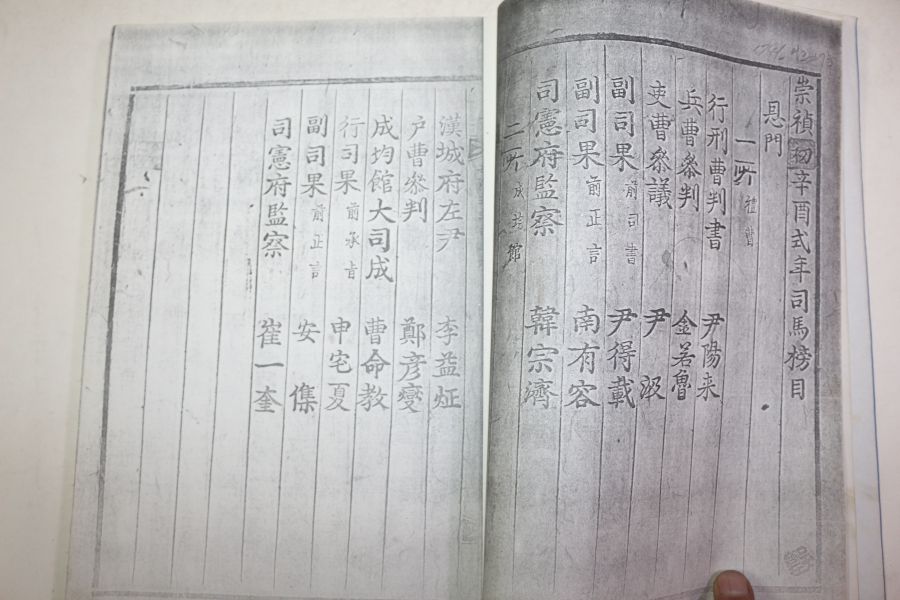 崇禎初辛酉式年司馬榜目
恩門
一所 禮曹
行刑曹判書 尹陽来
兵曹叅判 金若魯
吏曹叅議 尹汲
副司果 前司書 尹得載
副司果 前正言 南有容
司憲府監察 韓宗濟
二所 成均館
漢城府左尹 李益炡
户曹叅判 鄭彦燮
成均館大司成 曹命教
行司果 前承旨 申宅夏
副司果 前正言 安㒫
司憲府監察 崔一奎